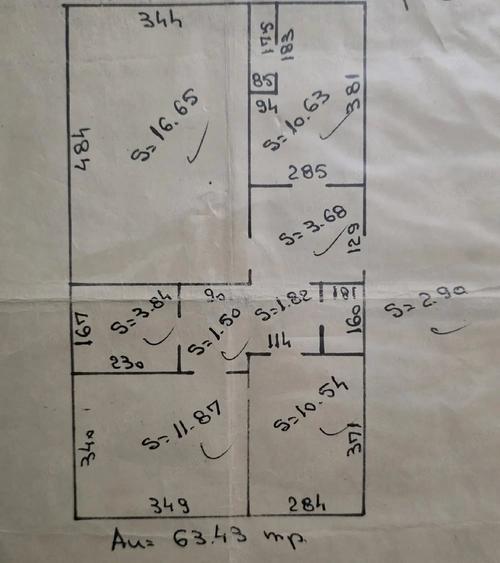 344
175
183
85
94
381
S=16.65
S=10.63
484
285
S=3.68
129
90
S=1.82
181
S=2.90
167
S=3.84
S=1.50
160
114
230
S=11.87
S=10.54
340
371
349
284
Au= 63.43 mp.